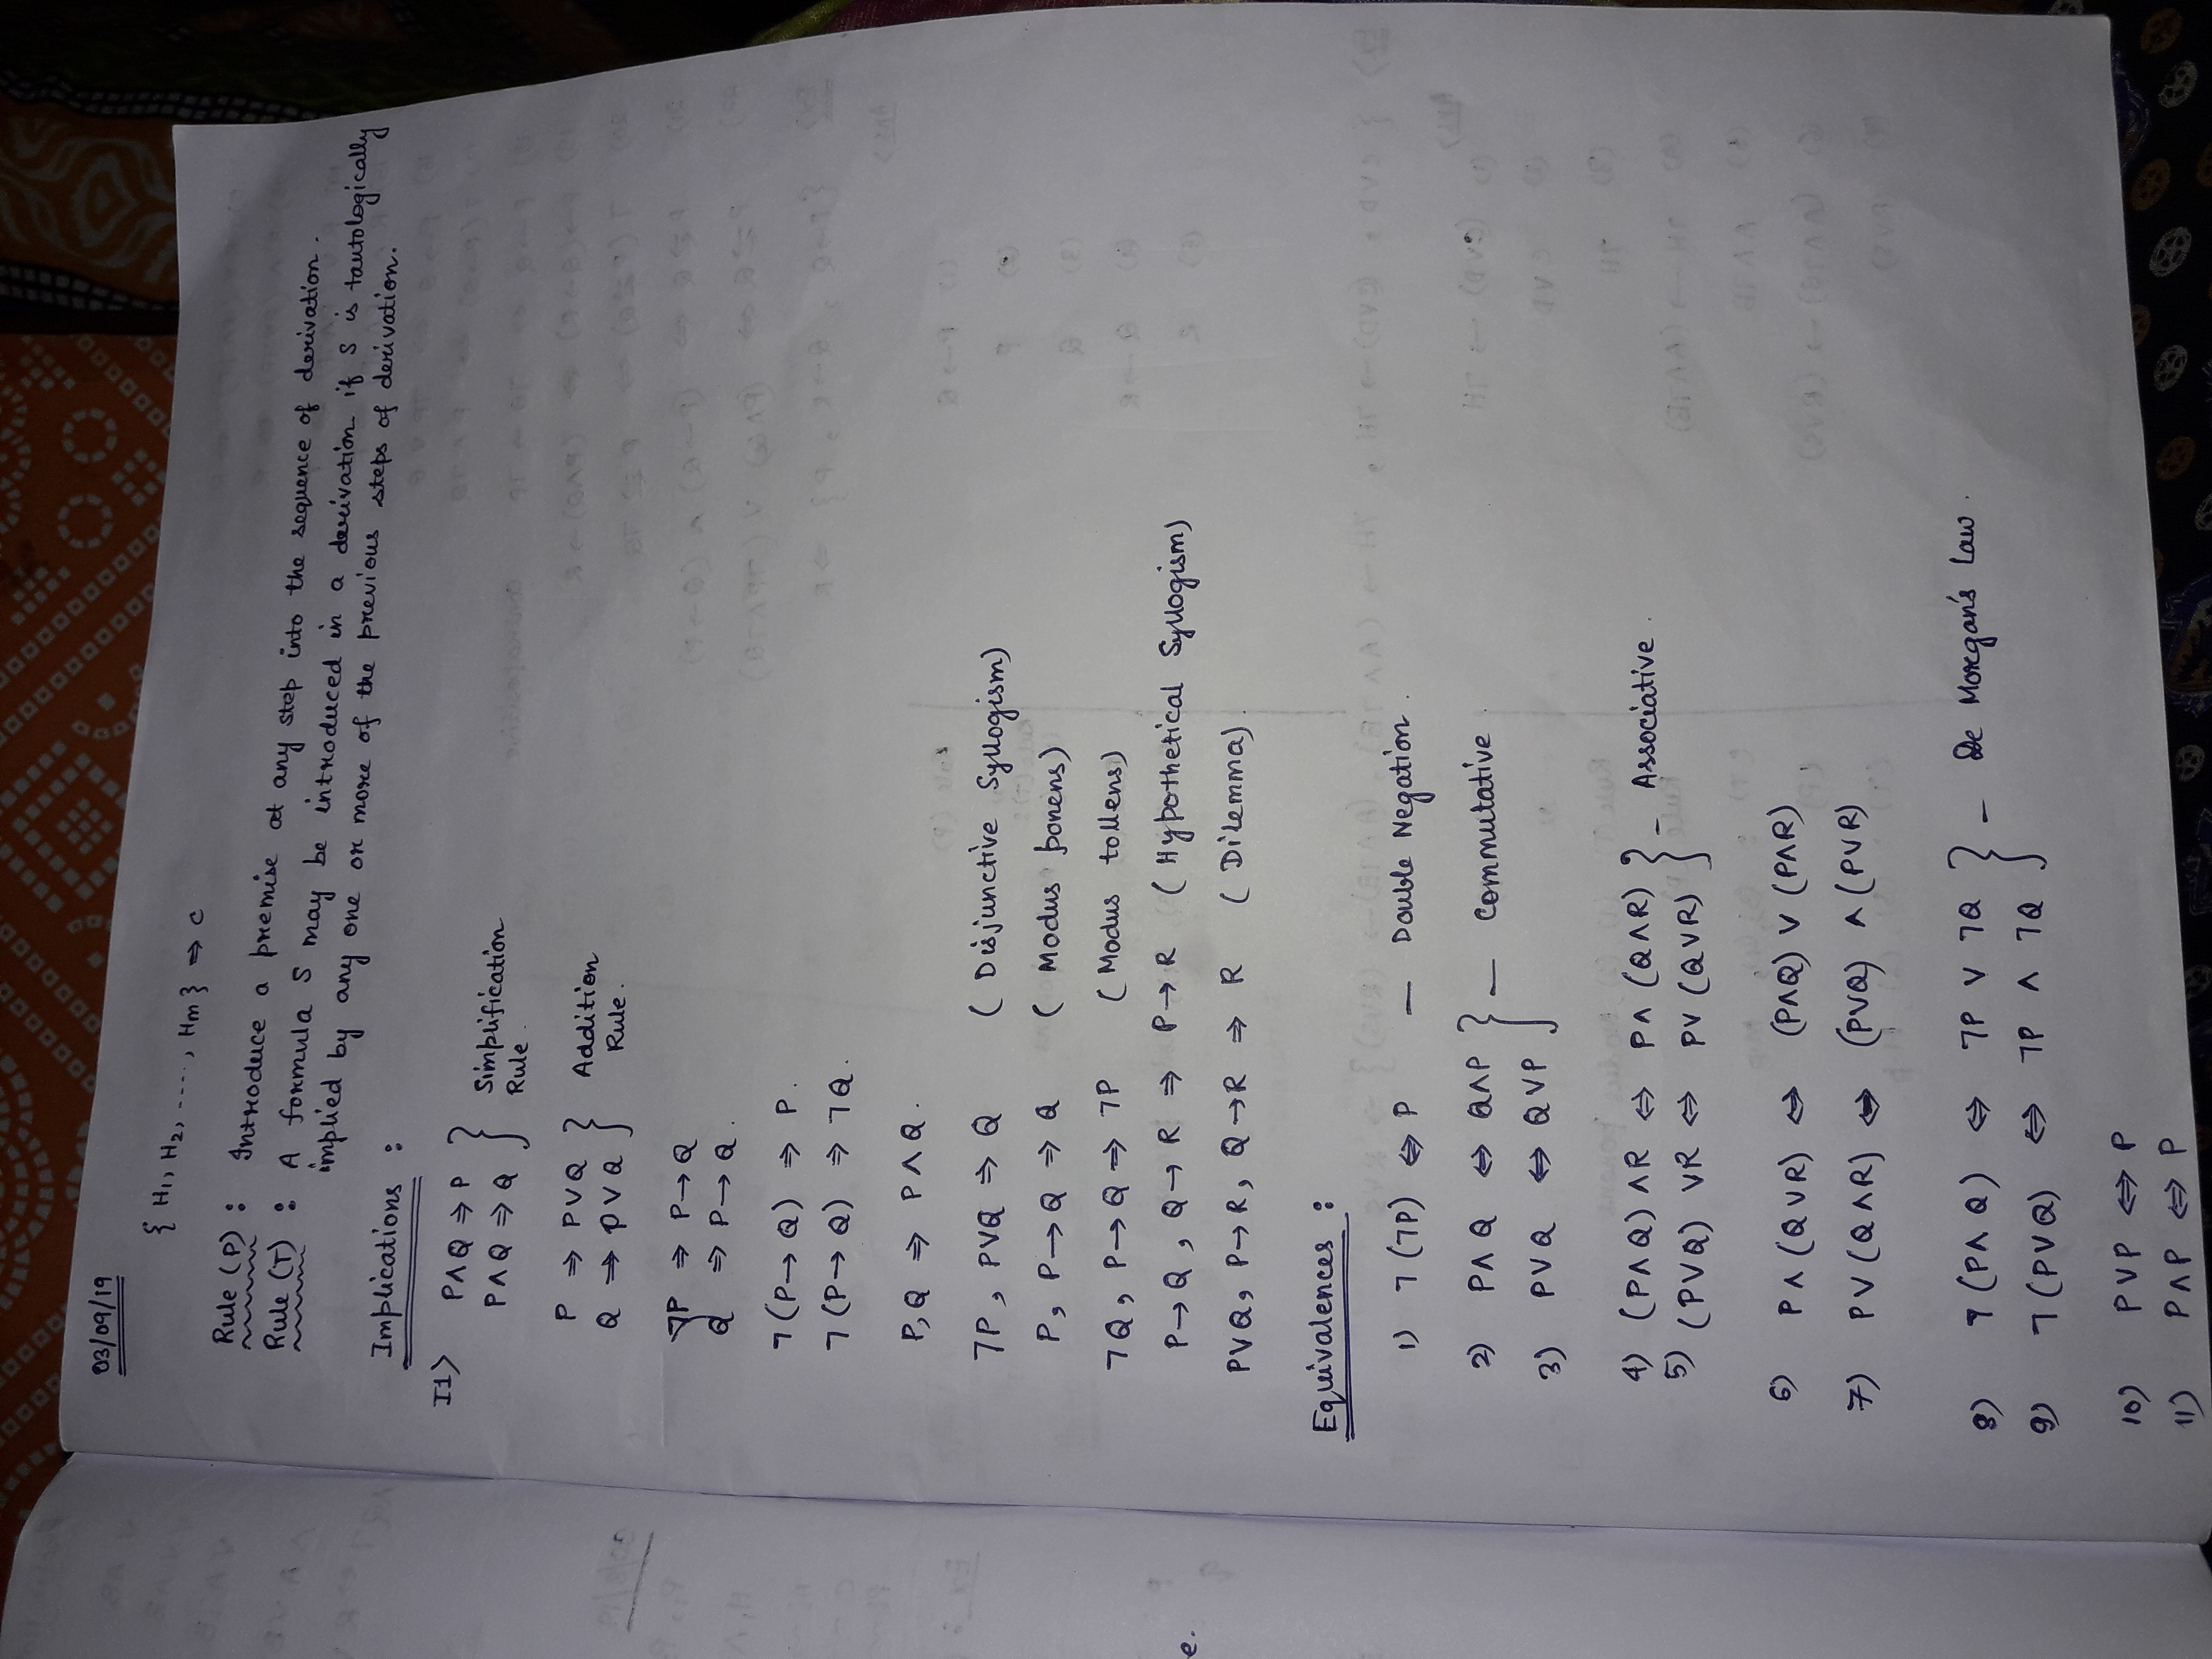 03/09/19
{ H1, H2, ...., Hm } ⇒ C
Rule (P) : Introduce a premise at any step into the sequence of derivation.
Rule (T) : A formula S may be introduced in a derivation if S is tautologically
implied by any one or more of the previous steps of derivation.
Implications :
I1> P∧Q ⇒ P
P∧Q ⇒ Q } Simplification Rule.
P ⇒ P∨Q
Q ⇒ P∨Q } Addition Rule.
¬P ⇒ P→Q
Q ⇒ P→Q.
¬(P→Q) ⇒ P.
¬(P→Q) ⇒ ¬Q.
P,Q ⇒ P∧Q.
¬P, P∨Q ⇒ Q (Disjunctive Syllogism)
P, P→Q ⇒ Q (Modus ponens)
¬Q, P→Q ⇒ ¬P (Modus tollens)
P→Q, Q→R ⇒ P→R (Hypothetical Syllogism)
P∨Q, P→R, Q→R ⇒ R (Dilemma).
Equivalences :
1) ¬(¬P) ⇔ P — Double Negation.
2) P∧Q ⇔ Q∧P
3) P∨Q ⇔ Q∨P } — Commutative.
4) (P∧Q)∧R ⇔ P∧(Q∧R)
5) (P∨Q)∨R ⇔ P∨(Q∨R) } — Associative.
6) P∧(Q∨R) ⇔ (P∧Q)∨(P∧R)
7) P∨(Q∧R) ⇔ (P∨Q)∧(P∨R)
8) ¬(P∧Q) ⇔ ¬P∨¬Q
9) ¬(P∨Q) ⇔ ¬P∧¬Q } — De Morgan's Law.
10) P∨P ⇔ P
11) P∧P ⇔ P
e.